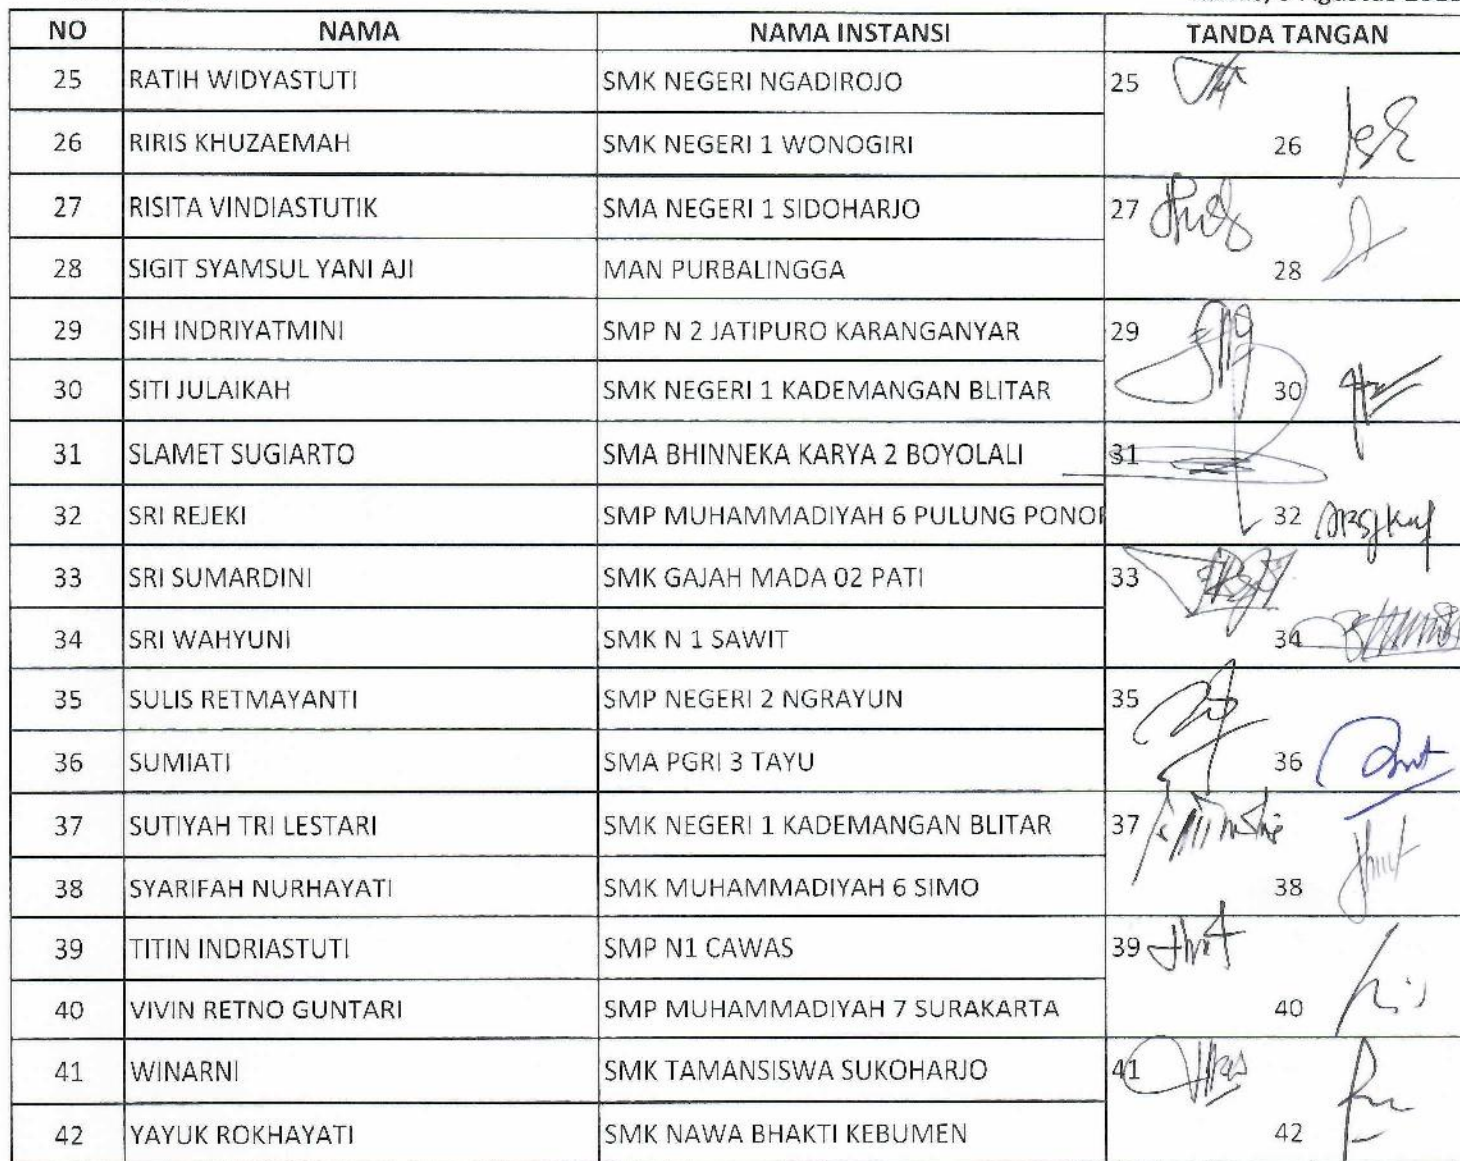 NO NAMA NAMA INSTANSI TANDA TANGAN
25 RATIH WIDYASTUTI SMK NEGERI NGADIROJO 25
26 RIRIS KHUZAEMAH SMK NEGERI 1 WONOGIRI 26
27 RISITA VINDIASTUTIK SMA NEGERI 1 SIDOHARJO 27
28 SIGIT SYAMSUL YANI AJI MAN PURBALINGGA 28
29 SIH INDRIYATMINI SMP N 2 JATIPURO KARANGANYAR 29
30 SITI JULAIKAH SMK NEGERI 1 KADEMANGAN BLITAR 30
31 SLAMET SUGIARTO SMA BHINNEKA KARYA 2 BOYOLALI 31
32 SRI REJEKI SMP MUHAMMADIYAH 6 PULUNG 32
33 SRI SUMARDINI SMK GAJAH MADA 02 PATI 33
34 SRI WAHYUNI SMK N 1 SAWIT 34
35 SULIS RETMAYANTI SMP NEGERI 2 NGRAYUN 35
36 SUMIATI SMA PGRI 3 TAYU 36
37 SUTIYAH TRI LESTARI SMK NEGERI 1 KADEMANGAN BLITAR 37
38 SYARIFAH NURHAYATI SMK MUHAMMADIYAH 6 SIMO 38
39 TITIN INDRIASTUTI SMP N1 CAWAS 39
40 VIVIN RETNO GUNTARI SMP MUHAMMADIYAH 7 SURAKARTA 40
41 WINARNI SMK TAMANSISWA SUKOHARJO 41
42 YAYUK ROKHAYATI SMK NAWA BHAKTI KEBUMEN 42